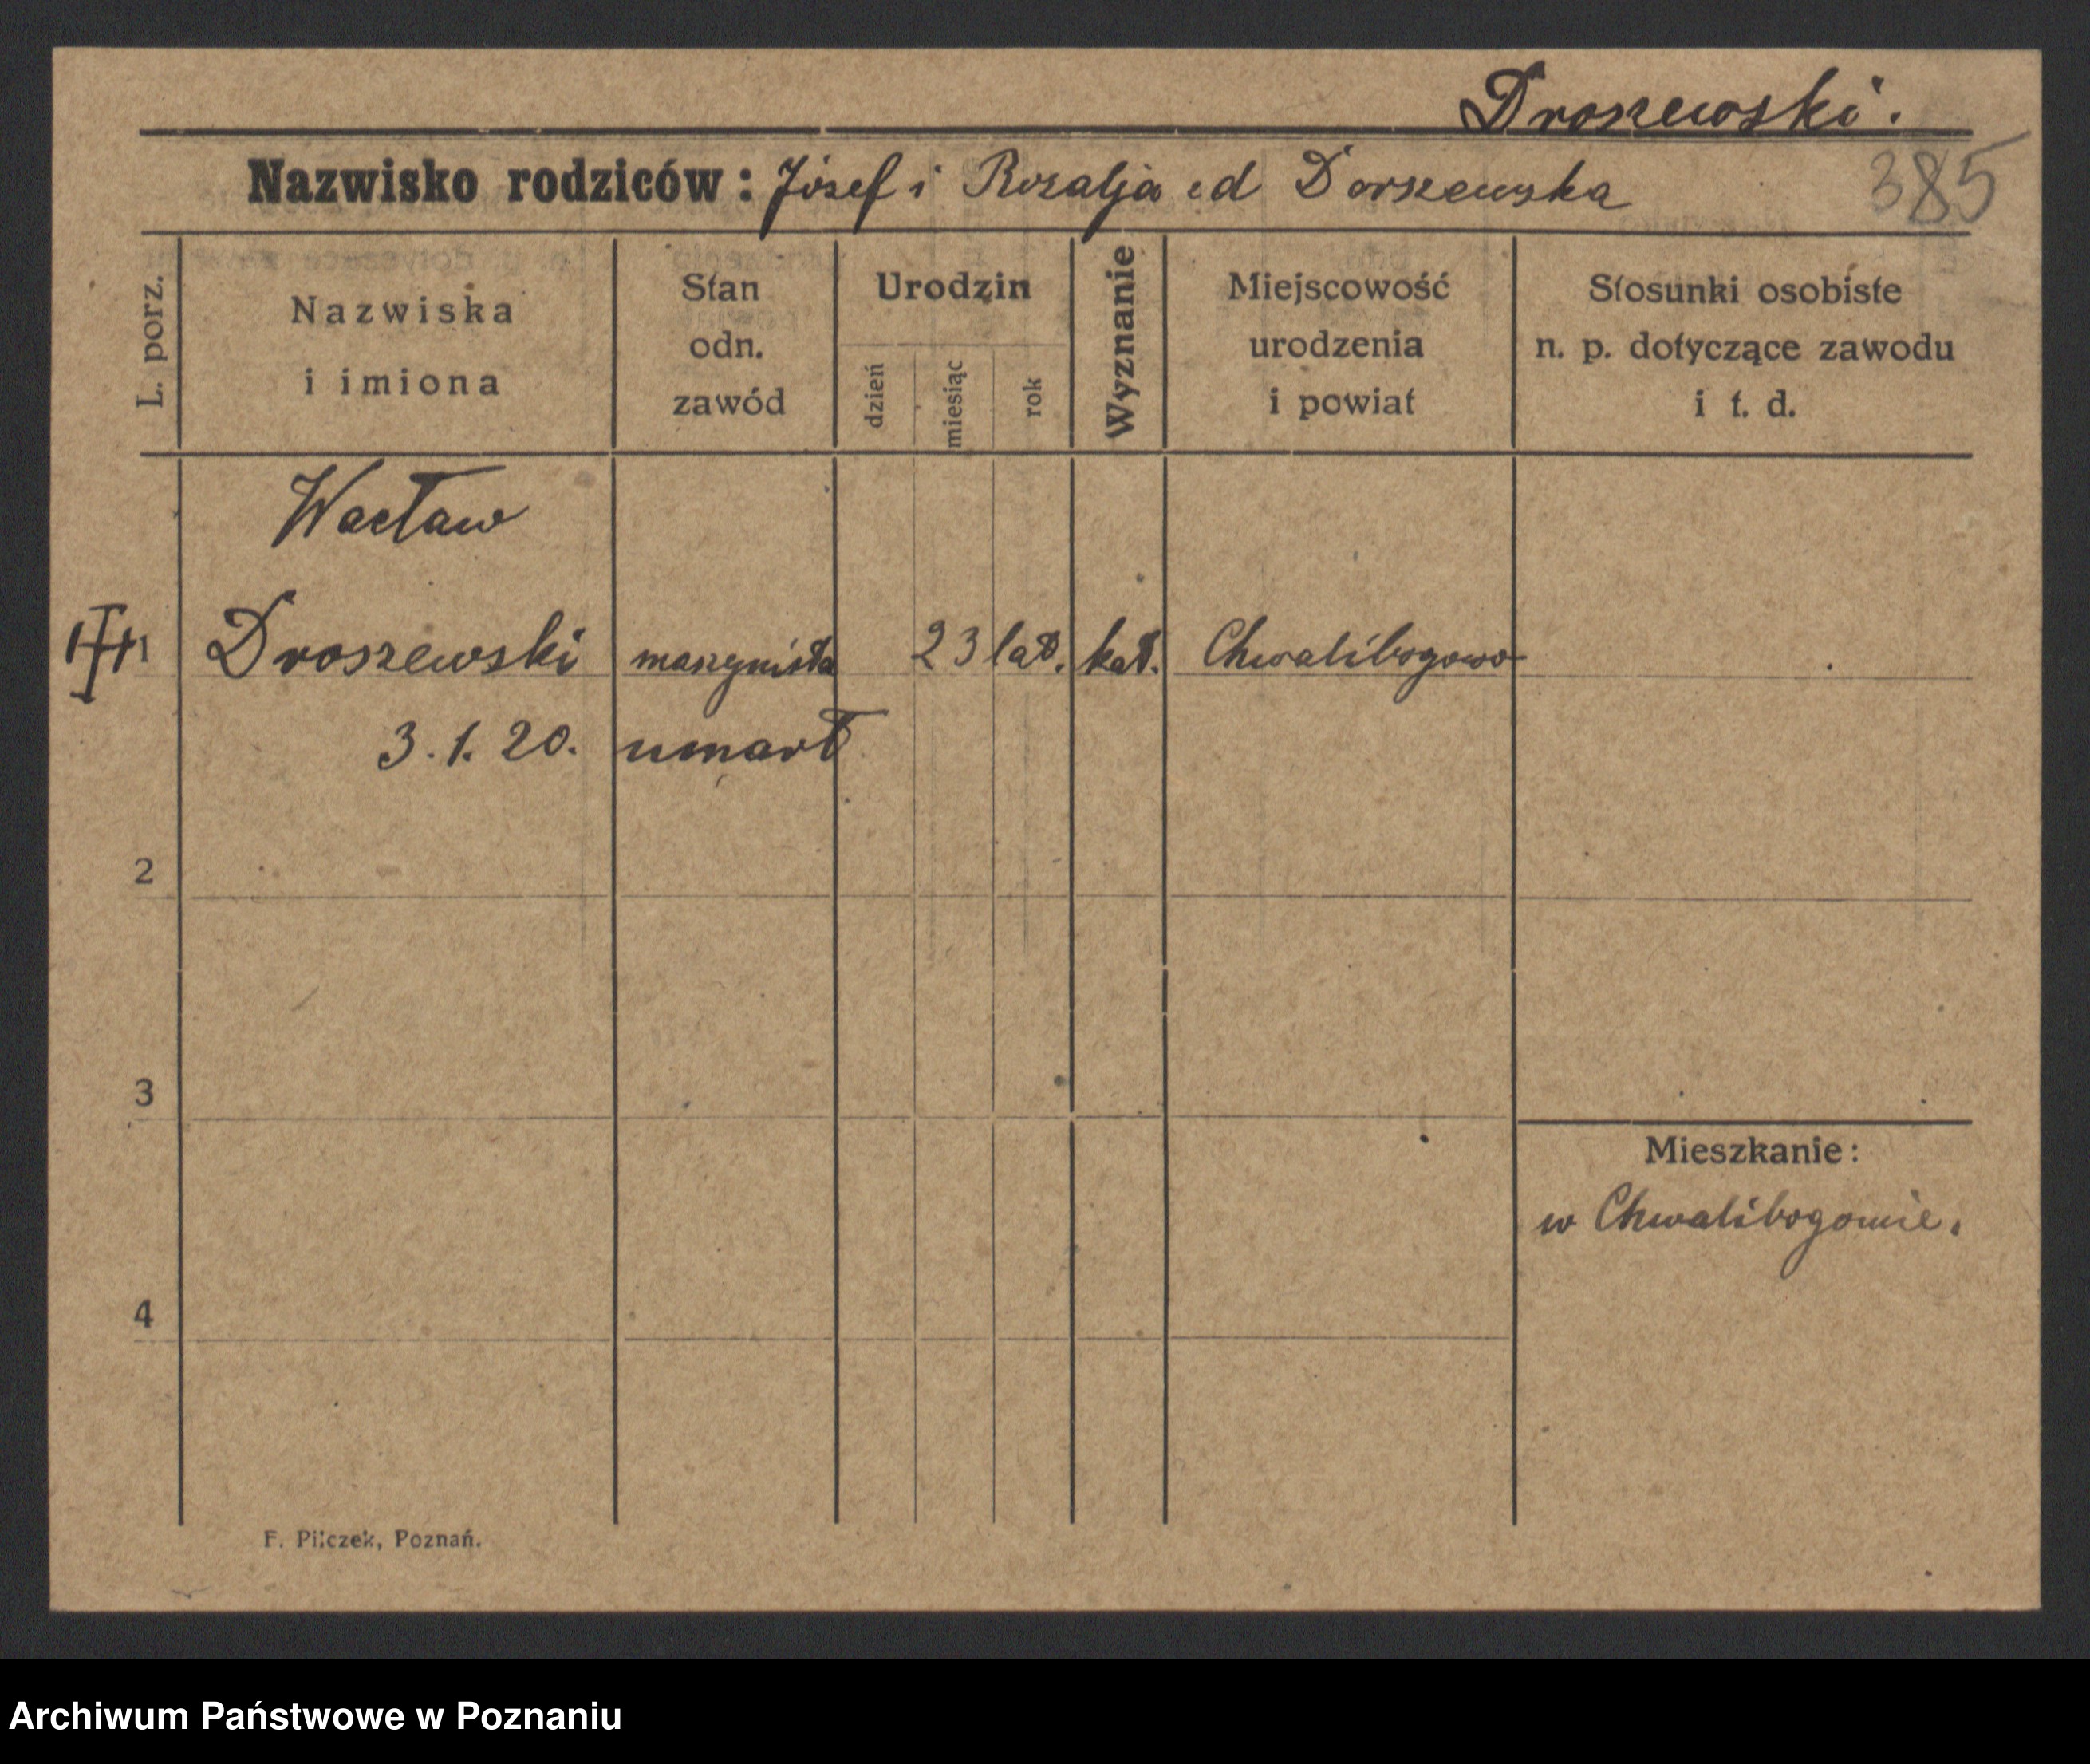 Droszewski.
Nazwisko rodziców: Józef i Rozalja Dorszewska
385
L. porz.
Nazwiska
i imiona
Stan
odn.
zawód
Urodzin
dzień
miesiąc
rok
Wyznanie
Miejscowość
urodzenia
i powiat
Stosunki osobiste
n. p. dotyczące zawodu
i t. d.
Wacław
Droszewski maszynista 23 lat. kat. Chwalibogowo
3. 1. 20. umarł
2
3
Mieszkanie:
w Chwalibogowie.
4
F. Pilczek, Poznań.
Archiwum Państwowe w Poznaniu